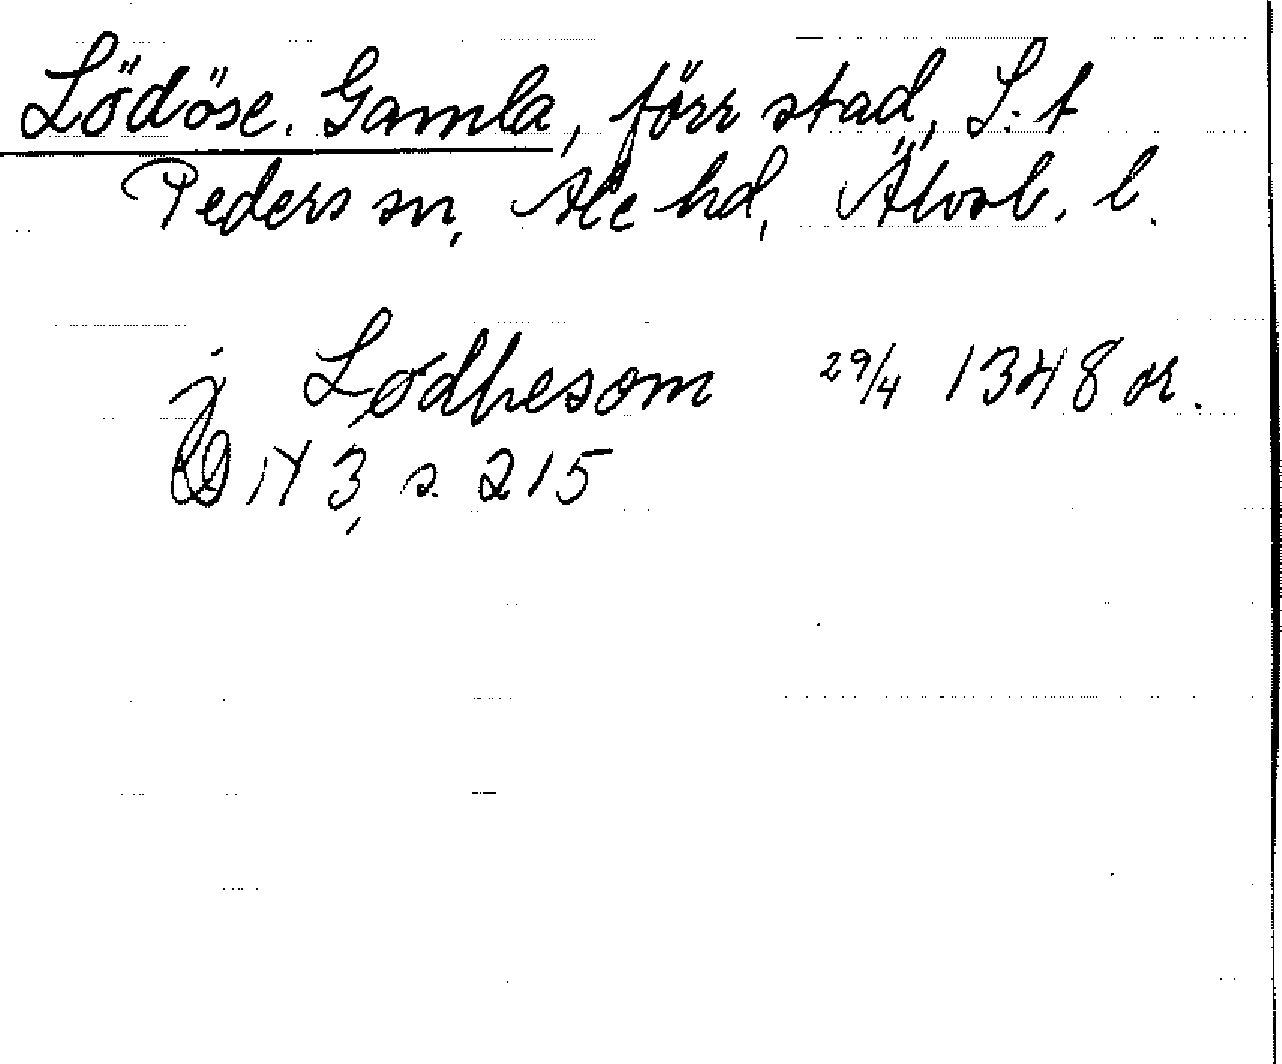 Lödöse. Gamla, förr stad, S:t
Peders sn, Ale hd, Älvsb. l.
j Lødhesom 29/4 1348 or.
D N 3, s. 215